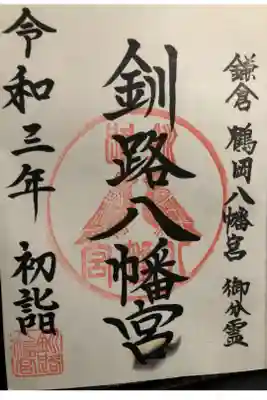 鎌倉 鶴岡八幡宮 御分霊
釧路八幡宮
令和三年 初詣